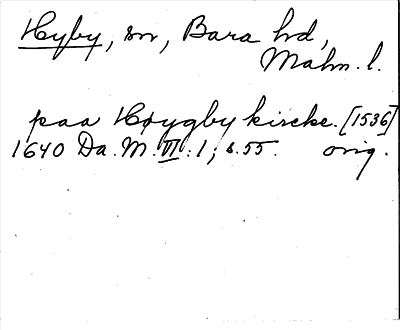 Hyby, sn, Bara hd,
Malm. l.
paa Høygby kircke. [1536]
1640 Da. M. VI. 1, s. 55. orig.